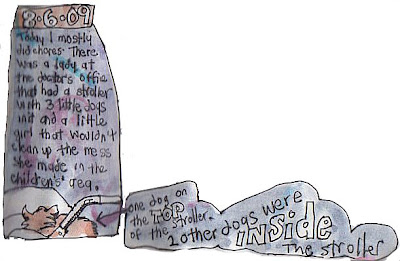 8·6·09
Today I mostly
did chores. There
was a lady at
the doctor's offie
that had a stroller
with 3 little dogs
in it and a little
girl that wouldn't
clean up the mess
she made in the
children's area.
one dog on
the TOP
of the stroller.
2 other dogs were
INSIDE
The stroller